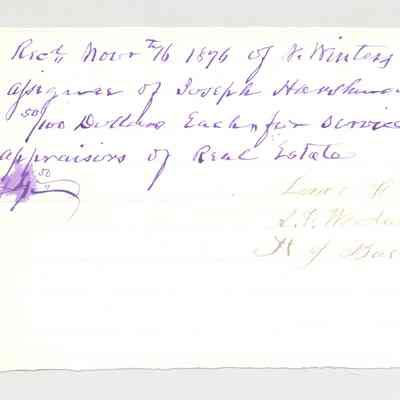 Recd Novr 16 1876 of V. Winters
assignee of Joseph
50/100 Dollars Each for Service
appraisors of Real Estate
50
Louis
S. T.